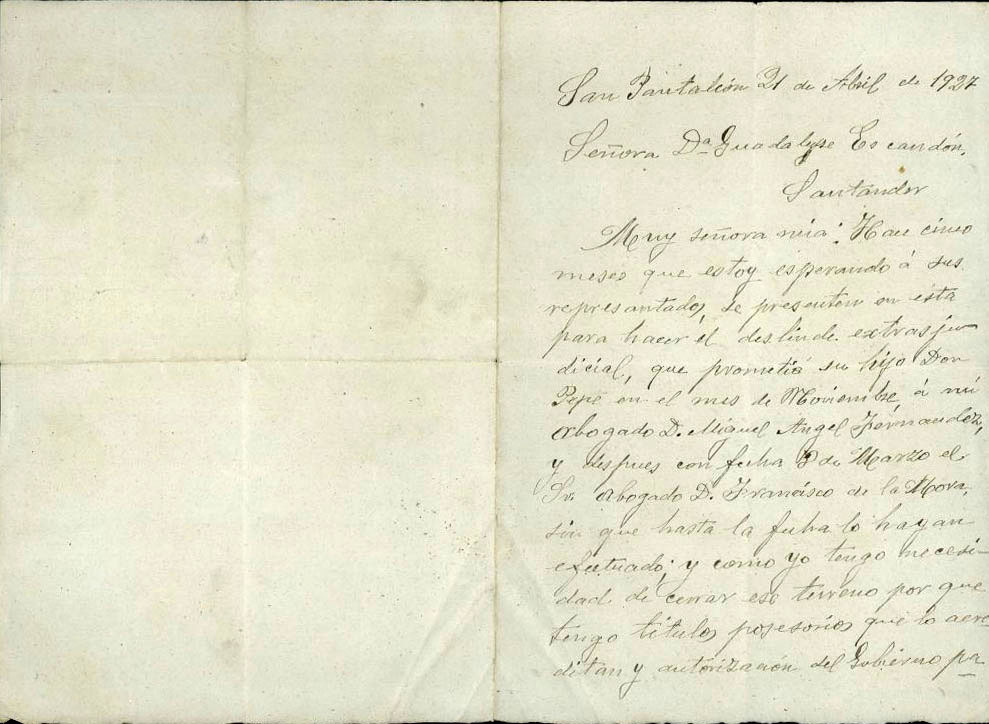 San Pantaleón 21 de Abril de 1927
Señora Dª Guadalupe Escandón.
Santander
Muy señora mia: Hace cinco
meses que estoy esperando á sus
representados, se presenten en esta
para hacer él deslinde extraju
dicial, que prometió su hijo Don
Pepe en el mes de Noviembre á mi
abogado D. Miguel Angel Fernandez,
y despues con fecha de Marzo el
Sr. abogado D. Francisco de la Mora,
sin que hasta la fecha lo hayan
efectuado; y como yo tengo necesi-
dad de cerrar ese terreno por que
tengo titulos posesorios que lo acre
ditan y autorización del Gobierno pa-